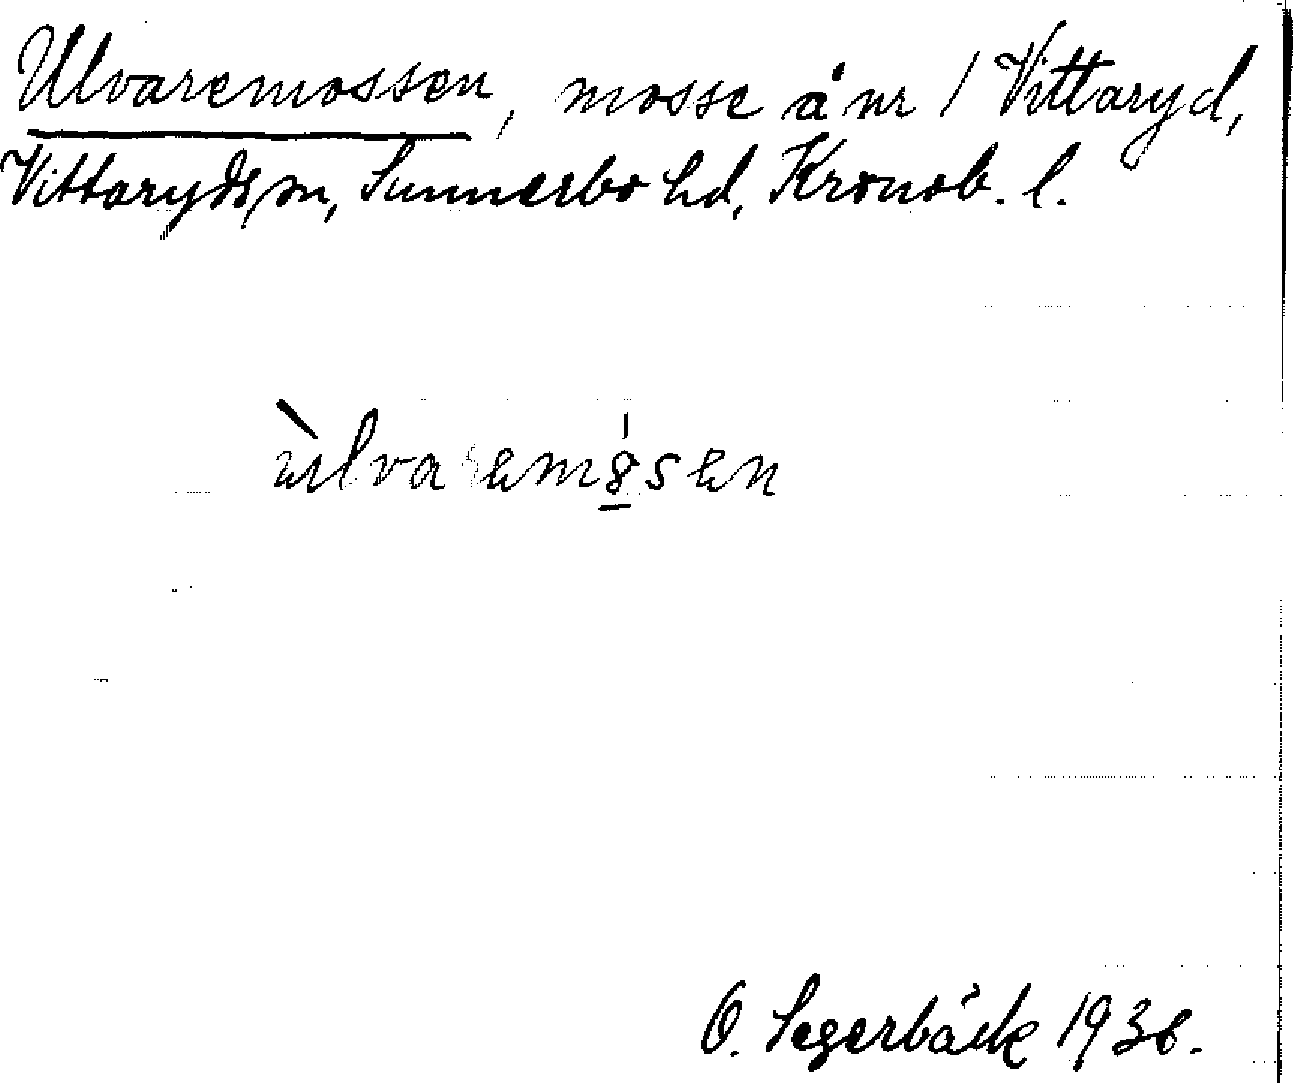 Ulvaremossen, mosse å nr 1 Vittaryd,
Vittaryds sn, Sunnerbo hd, Kronob. l.
O. Segerbäck 1936.